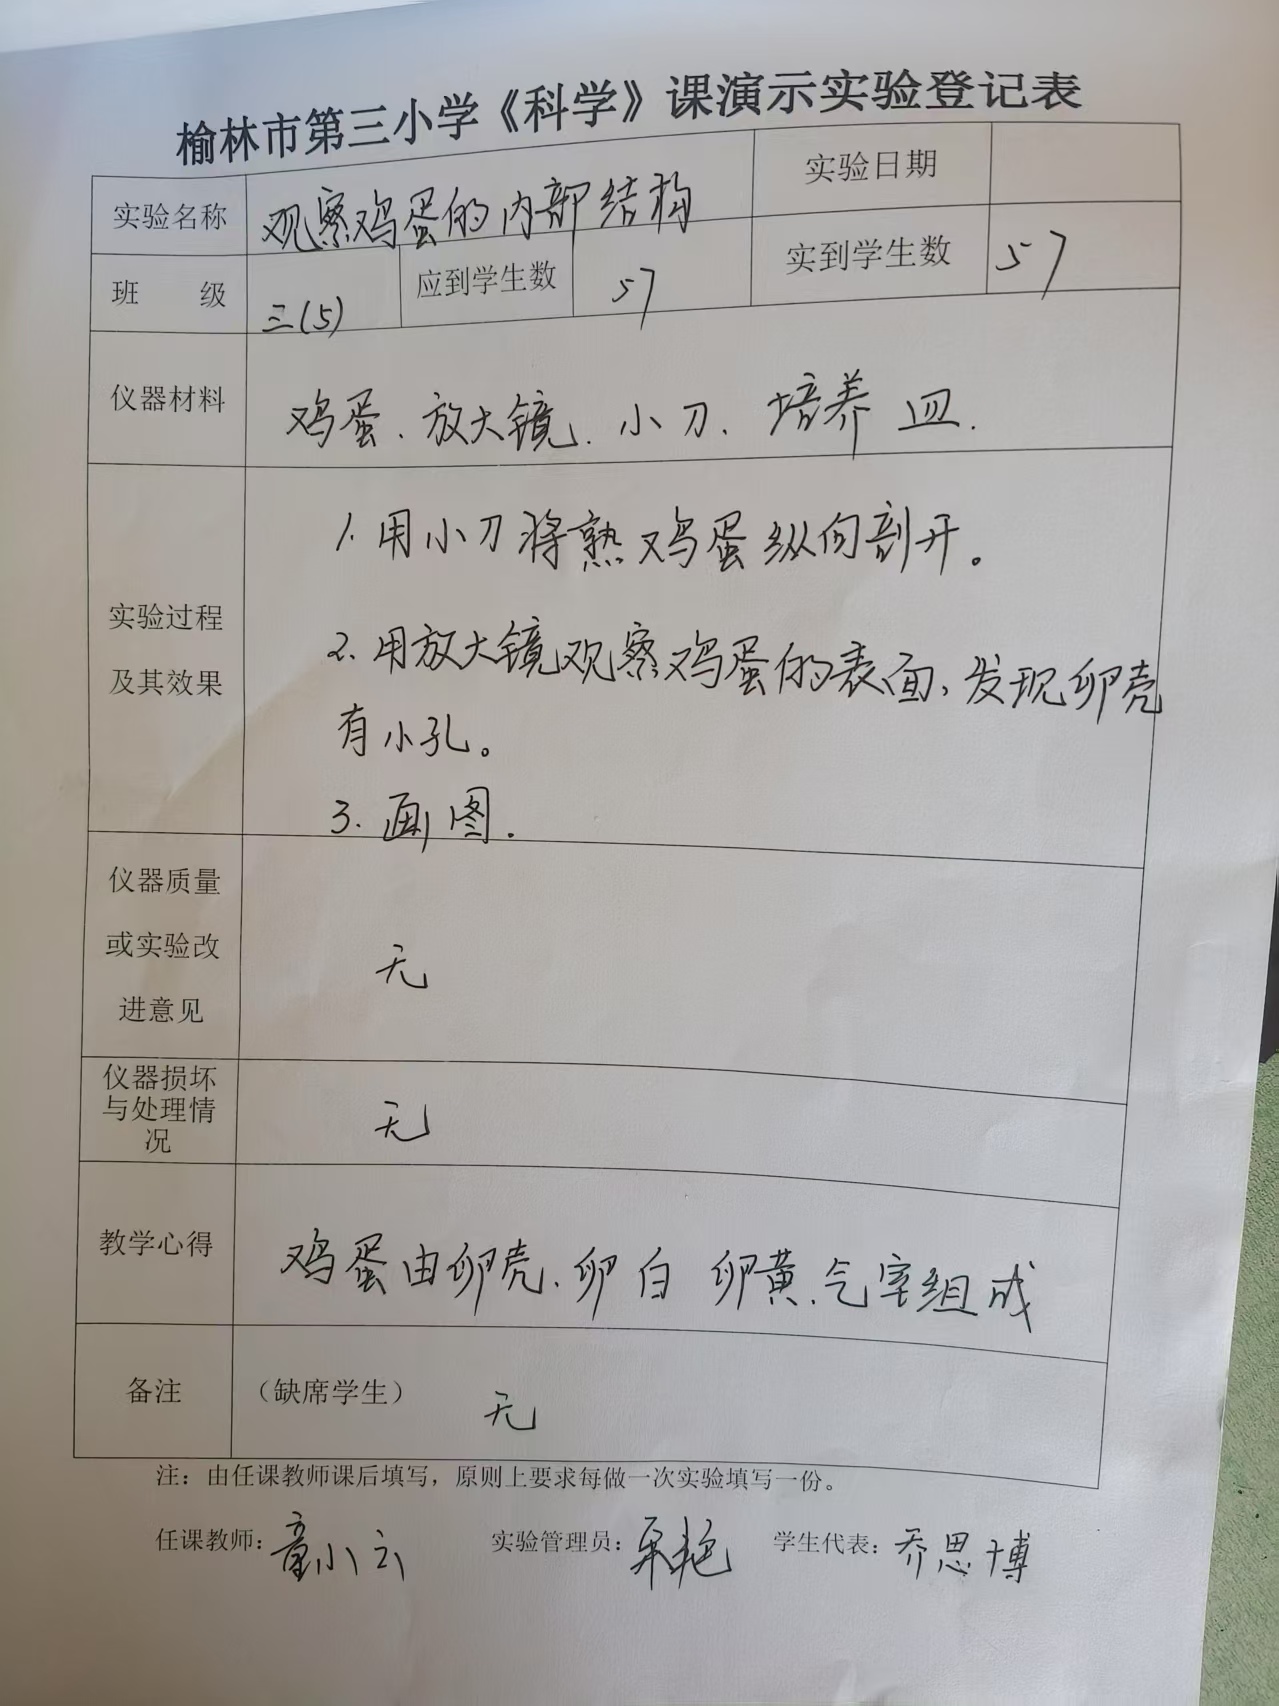 榆林市第三小学《科学》课演示实验登记表
实验名称 观察鸡蛋的内部结构 实验日期
班 级 三(5) 应到学生数 57 实到学生数 57
仪器材料 鸡蛋、放大镜、小刀、培养皿.
实验过程
及其效果
1.用小刀将熟鸡蛋纵向剖开。
2.用放大镜观察鸡蛋的表面,发现卵壳
有小孔。
3.画图.
仪器质量
或实验改
进意见
无
仪器损坏
与处理情
况
无
教学心得 鸡蛋由卵壳、卵白 卵黄、气室组成
备注 （缺席学生） 无
注：由任课教师课后填写，原则上要求每做一次实验填写一份。
任课教师：童小云 实验管理员： 学生代表：乔思博